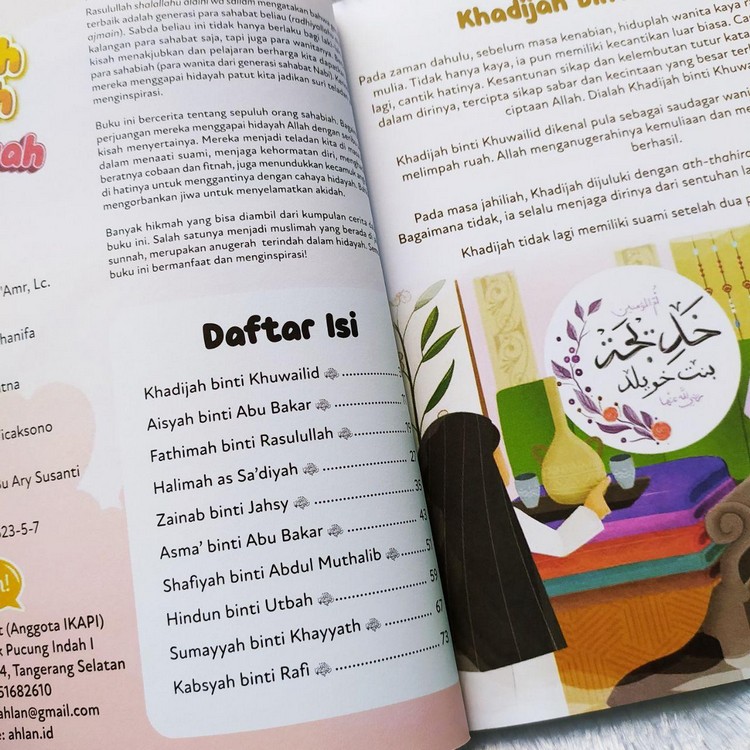 Rasulullah shalallahu alaihi wa sallam mengatakan bahwa
terbaik adalah generasi para sahabat beliau
ajmain). Sabda beliau ini tidak hanya berlaku bagi
kalangan para sahabat saja, tapi juga para wanitanya
kisah menakjubkan dan pelajaran berharga kita dapat
para sahabiah (para wanita dari generasi sahabat Nabi).
mereka menggapai hidayah patut kita jadikan suri
menginspirasi.
Buku ini bercerita tentang sepuluh orang sahabiah.
perjuangan mereka menggapai hidayah Allah dengan
kisah menyertainya. Mereka menjadi teladan kita di
dalam menaati suami, menjaga kehormatan diri,
beratnya cobaan dan fitnah, juga menundukkan kecamuk
di hatinya untuk menggantinya dengan cahaya hidayah.
mengorbankan jiwa untuk menyelamatkan akidah.
Banyak hikmah yang bisa diambil dari kumpulan cerita
buku ini. Salah satunya menjadi muslimah yang berada di
sunnah, merupakan anugerah terindah dalam hidayah.
buku ini bermanfaat dan menginspirasi!
'Amr, Lc.
hanifa
tna
icaksono
u Ary Susanti
523-5-7
(Anggota IKAPI)
Pucung Indah I
4, Tangerang Selatan
51682610
ahlan@gmail.com
: ahlan.id
Daftar Isi
Khadijah binti Khuwailid
Aisyah binti Abu Bakar
Fathimah binti Rasulullah 19
Halimah as Sa'diyah 27
Zainab binti Jahsy 35
Asma' binti Abu Bakar 43
Shafiyah binti Abdul Muthalib 51
Hindun binti Utbah 59
Sumayyah binti Khayyath 67
Kabsyah binti Rafi 73
Khadijah
Pada zaman dahulu, sebelum masa kenabian, hiduplah wanita kaya
mulia. Tidak hanya kaya, ia pun memiliki kecantikan luar biasa.
lagi, cantik hatinya. Kesantunan sikap dan kelembutan tutur
dalam dirinya, tercipta sikap sabar dan kecintaan yang besar
ciptaan Allah. Dialah Khadijah binti
Khadijah binti Khuwailid dikenal pula sebagai saudagar
melimpah ruah. Allah menganugerahinya kemuliaan dan
berhasil.
Pada masa jahiliah, Khadijah dijuluki dengan
Bagaimana tidak, ia selalu menjaga dirinya dari sentuhan
Khadijah tidak lagi memiliki suami setelah dua
خديجة
بنت خويلد
رضي الله عنها